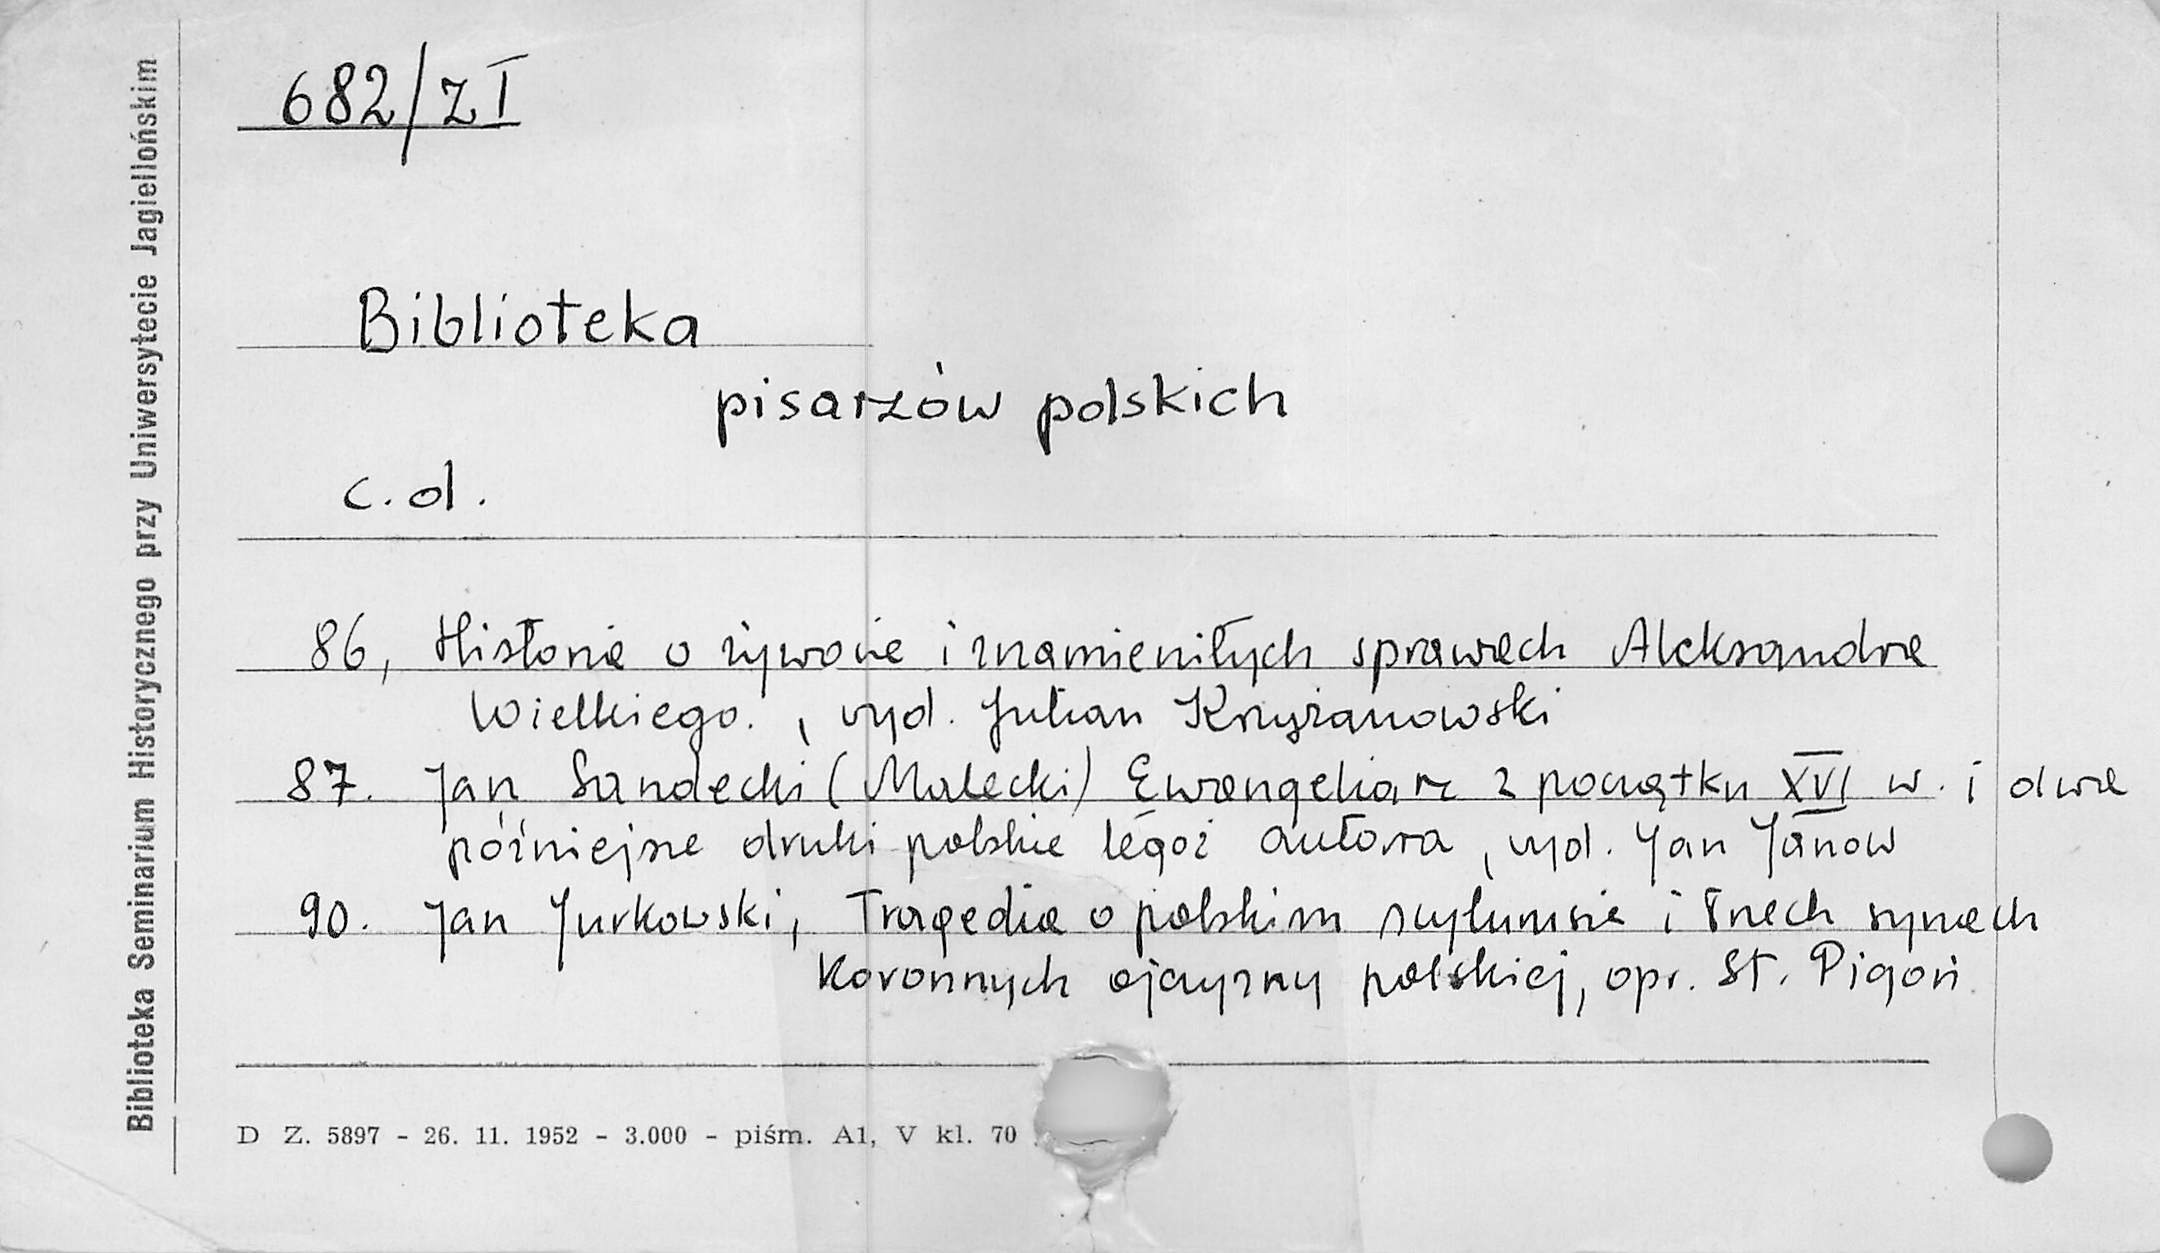 682/z I
Biblioteka
pisarzów polskich
c.d.
86, Historia o żywocie i znamienitych sprawach Aleksandra
Wielkiego. , wyd. Julian Krzyżanowski
87. Jan Sandecki (Malecki) Ewangeliarz z początku XVI w. i dwa
późniejsze druki polskie tegoż autora, wyd. Jan Janow
90. Jan Jurkowski, Tragedia o polskim scylurusie i trzech synach
koronnych ojczyzny polskiej, opr. St. Pigoń
D Z. 5897 - 26. 11. 1952 - 3.000 - piśm. A1, V kl. 70
Biblioteka Seminarium Historycznego przy Uniwersytecie Jagiellońskim